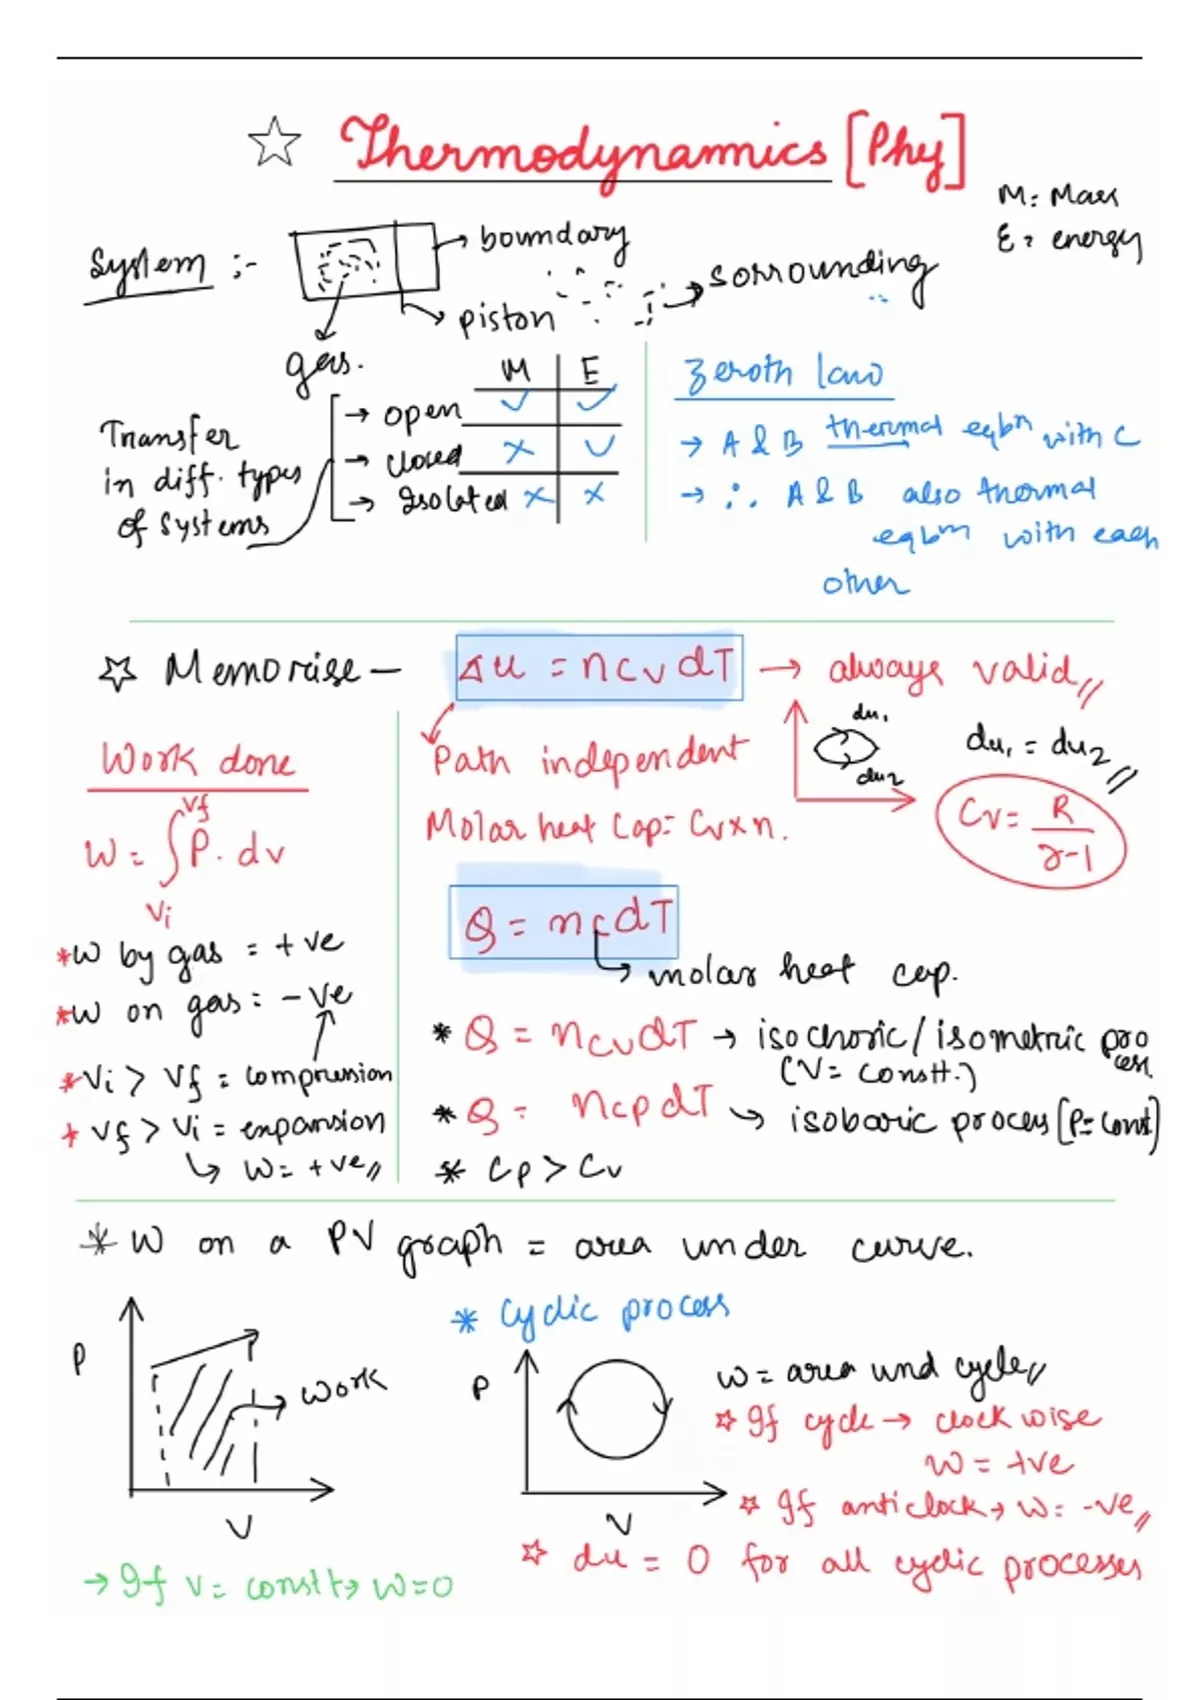 ☆ Thermodynamics [Phy]
M: Mass
E = energy
System :-
boundary
sorrounding
piston
gas.
M E
Transfer in diff. types of systems
→ open ✓ ✓
→ closed × ✓
→ Isolated × ×
Zeroth law
→ A & B thermal eqbm with C
→ ∴ A & B also thermal
eqbm with each
other
☆ Memorise - Δu = ncv dT → always valid//
Work done
W = ∫ P. dv
vf
Vi
*W by gas = +ve
*W on gas = -ve
*Vi > Vf = compression
* Vf > Vi = expansion
↳ W = +ve//
Path independent
Molar heat Cap = Cv x n.
du1
du2
du1 = du2//
Cv = R/γ-1
Q = ncdT
↳ molar heat cap.
* Q = ncvdT → isochoric / isometric process
(V = constt.)
* Q = ncpdT ↳ isobaric process [P = const]
* Cp > Cv
* W on a PV graph = area under curve.
P
work
V
→ If V = constt → W = 0
* Cyclic process
P
V
W = area und cycle//
☆ If cycle → clockwise
W = +ve
☆ If anticlock → W = -ve//
☆ du = 0 for all cyclic processes